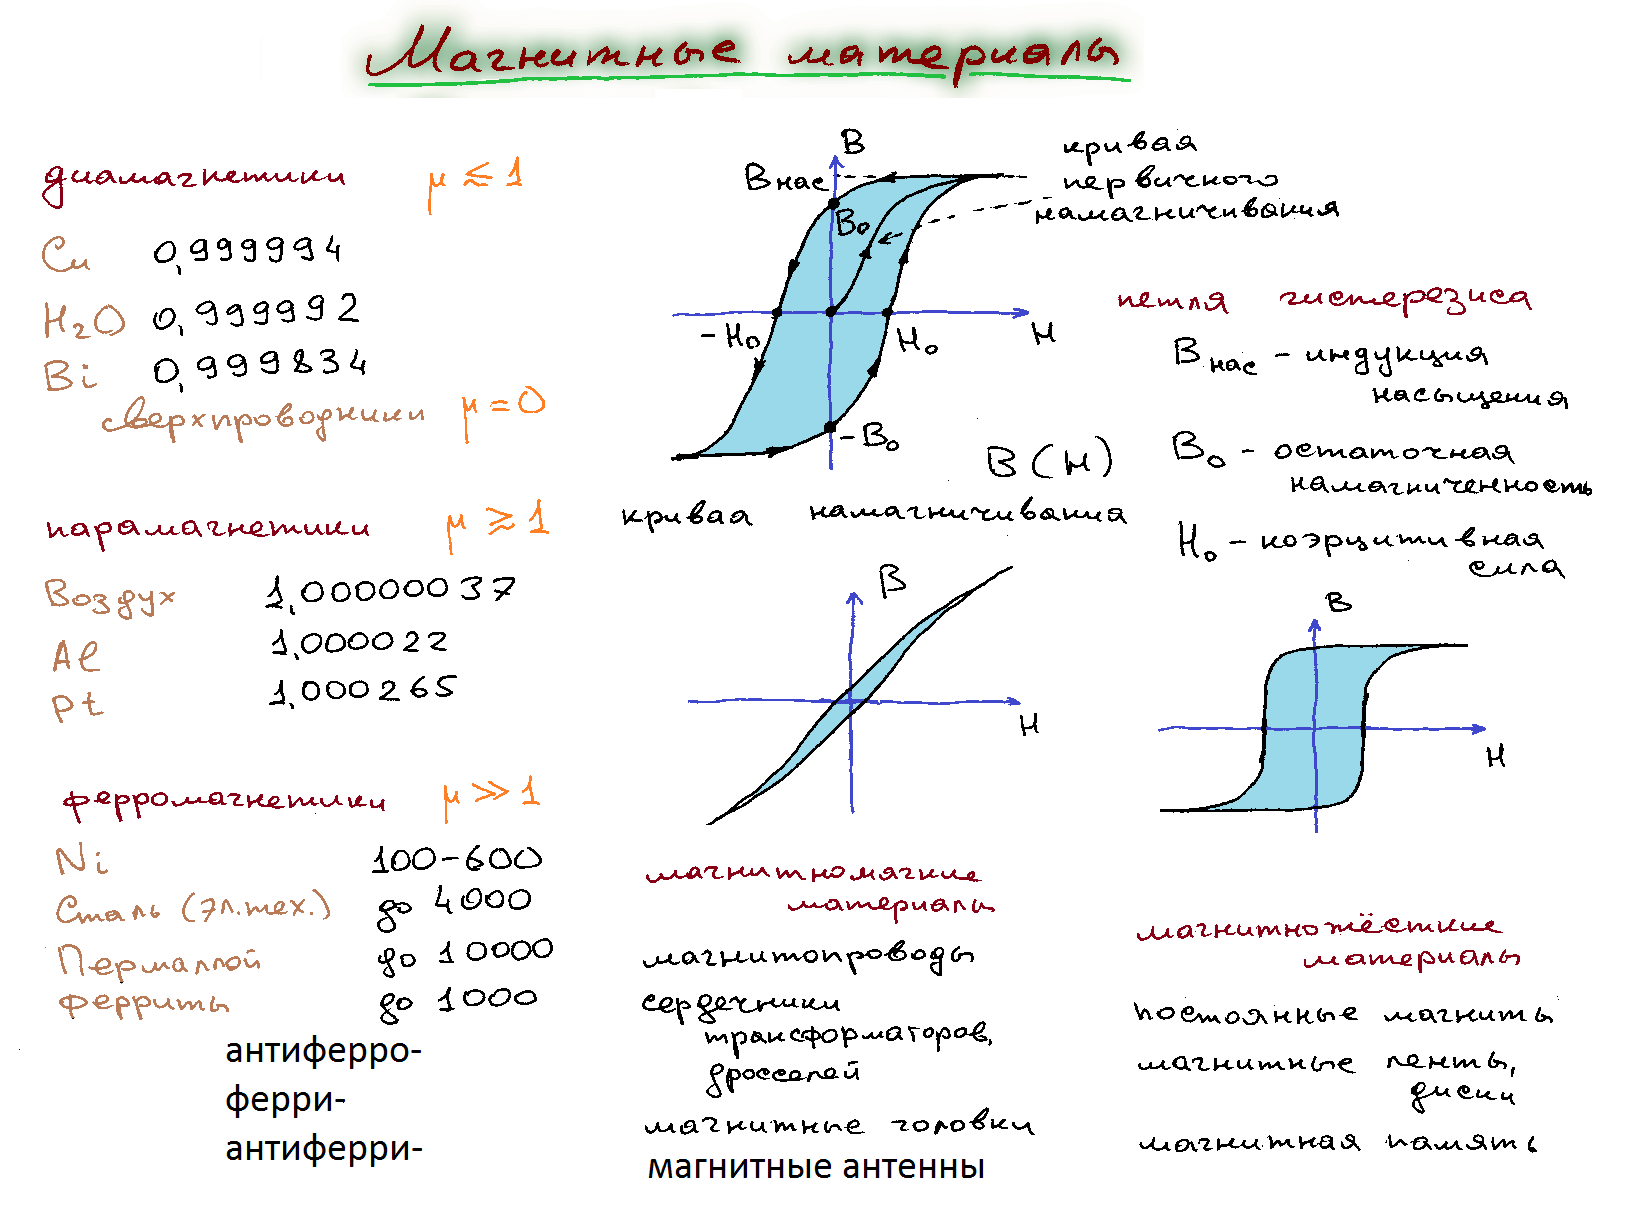 Магнитные материалы
диамагнетики μ ≲ 1
Cu 0,999994
H₂O 0,999992
Bi 0,999834
сверхпроводники μ = 0
парамагнетики μ ≳ 1
Воздух 1,00000037
Al 1,000022
Pt 1,000265
ферромагнетики μ >> 1
Ni 100-600
Сталь (эл.тех.) до 4000
Пермаллой до 10000
Ферриты до 1000
антиферро-
ферри-
антиферри-
B
Bнас
B₀
-H₀
H₀
H
-B₀
кривая
первичного
намагничивания
B(H)
кривая намагничивания
петля гистерезиса
Bнас - индукция
насыщения
B₀ - остаточная
намагниченность
H₀ - коэрцитивная
сила
B
H
магнитномягкие
материалы
магнитопроводы
сердечники
трансформаторов,
дросселей
магнитные головки
магнитные антенны
B
H
магнитножёсткие
материалы
постоянные магниты
магнитные ленты,
диски
магнитная память